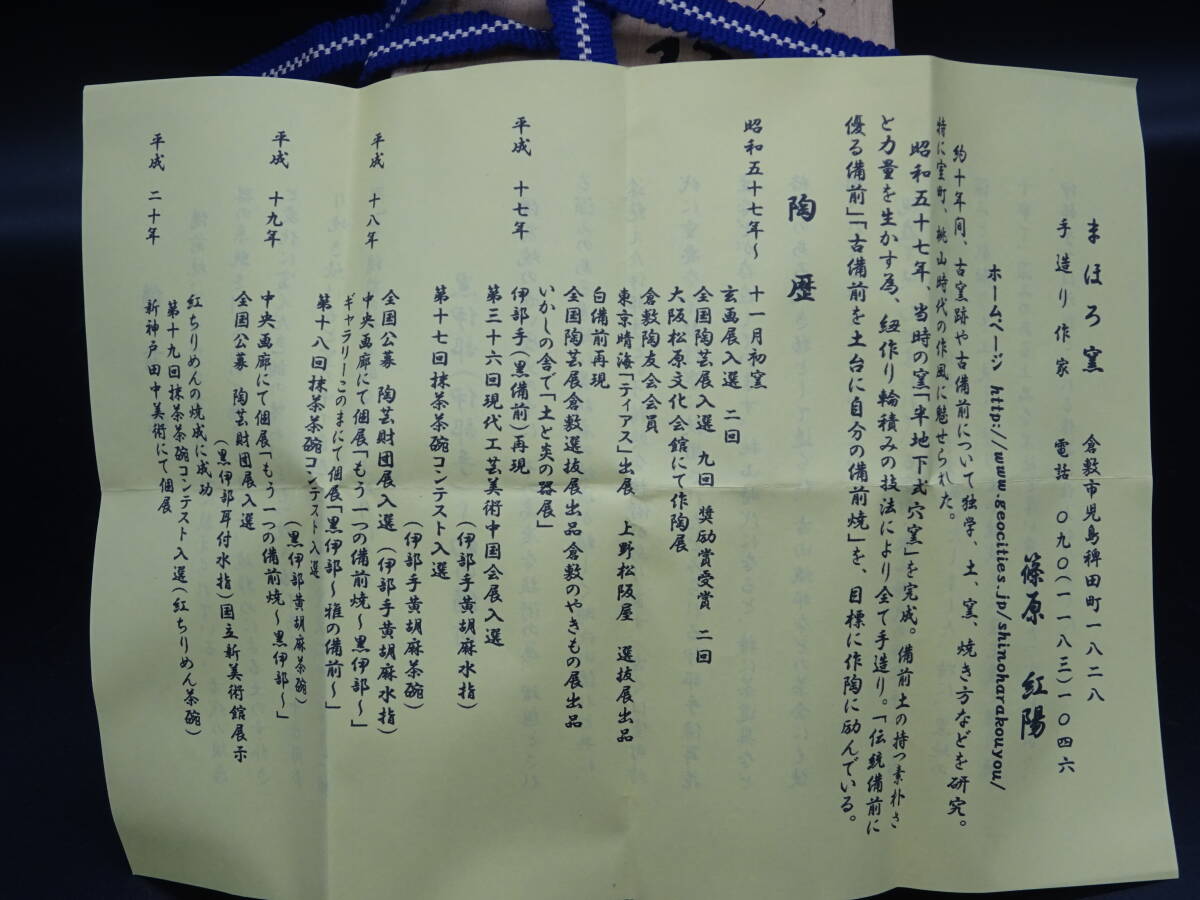 まほろ窯　倉敷市児島稗田町一八二八
手造り作家　電話　〇九〇(一一八三)一〇四六
篠原　紅陽
ホームページ　http://www.geocities.jp/shinoharakouyou/
約十年間、古窯跡や古備前について独学、土、窯、焼き方などを研究。
特に室町、桃山時代の作風に魅せられた。
昭和五十七年、当時の窯「半地下式穴窯」を完成。備前土の持つ素朴さ
と力量を生かす為、紐作り輪積みの技法により全て手造り。「伝統備前に
優る備前」「古備前を土台に自分の備前焼」を、目標に作陶に励んでいる。
陶歴
昭和五十七年～　十一月初窯
玄画展入選　二回
全国陶芸展入選　九回　奨励賞受賞　二回
大阪松原文化会館にて作陶展
倉敷陶友会会員
東京晴海「ティアス」出展　上野松坂屋　選抜展出品
白備前再現
全国陶芸展倉敷選抜展出品　倉敷のやきもの展出品
いかしの舎で「土と炎の器展」
平成　十七年　伊部手(黒備前)再現
第三十六回現代工芸美術中国会展入選
(伊部手黄胡麻水指)
第十七回抹茶茶碗コンテスト入選
(伊部手黄胡麻茶碗)
平成　十八年　全国公募　陶芸財団展入選　(伊部手黄胡麻水指)
中央画廊にて個展「もう一つの備前焼～黒伊部～」
ギャラリーこのまにて個展「黒伊部～雅の備前～」
第十八回抹茶茶碗コンテスト入選
(黒伊部黄胡麻茶碗)
平成　十九年　中央画廊にて個展「もう一つの備前焼～黒伊部～」
全国公募　陶芸財団展入選
(黒伊部耳付水指)国立新美術館展示
平成　二十年　紅ちりめんの焼成に成功
第十九回抹茶茶碗コンテスト入選(紅ちりめん茶碗)
新神戸田中美術にて個展